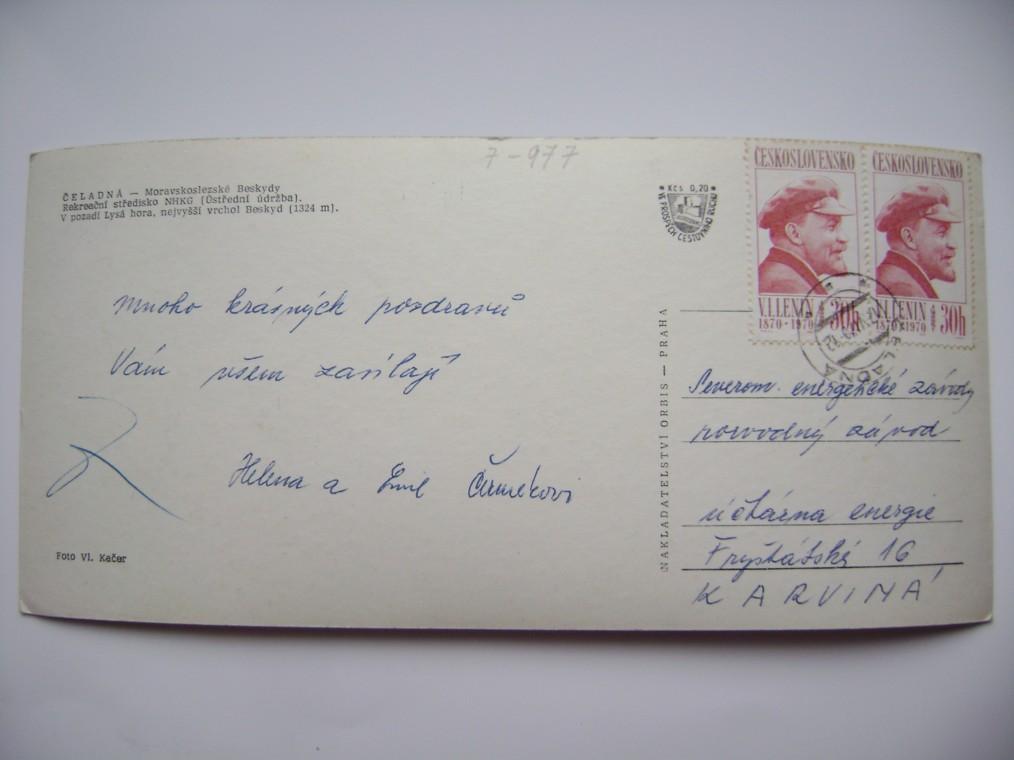 7-977
ČELADNÁ — Moravskoslezské Beskydy
Rekreační středisko NHKG (Ústřední údržba).
V pozadí Lysá hora, nejvyšší vrchol Beskyd (1324 m).
Kčs 0,20
VE PROSPĚCH CESTOVNÍHO RUCHU
ČESKOSLOVENSKO
V.I.LENIN
1870-1970
30h
ČESKOSLOVENSKO
V.I.LENIN
1870-1970
30h
ČELADNÁ
Mnoho krásných pozdravů
Vám všem zasílají
Helena a Emil
Foto Vl. Kačer
NAKLADATELSTVÍ ORBIS — PRAHA
Severom. energetické závody
rozvodný závod
účtárna energie
Fryštátská 16
KARVINÁ